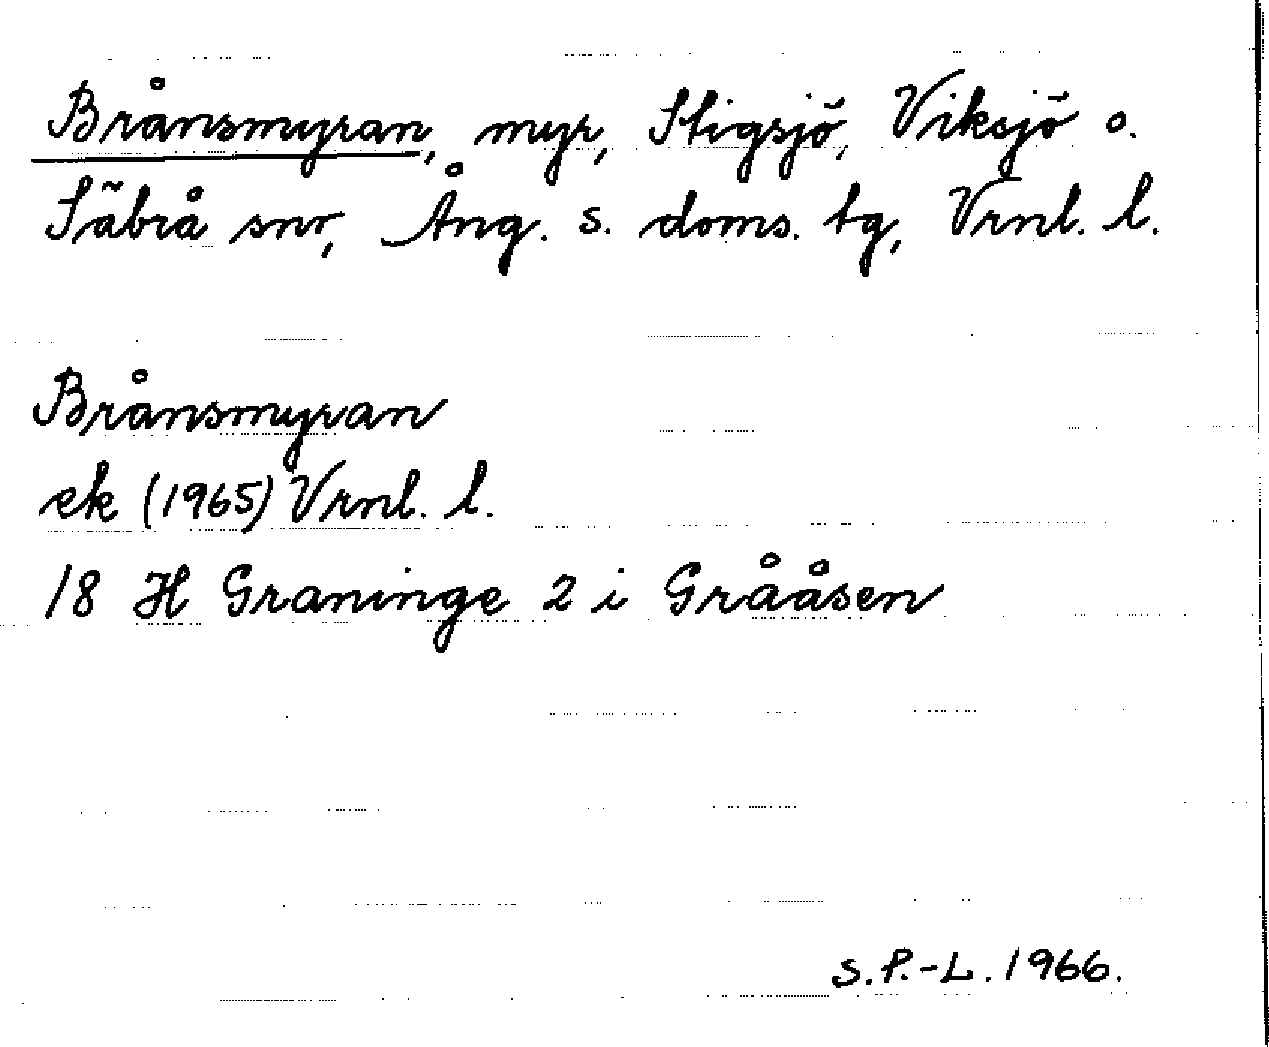 Brånsmyran, myr, Stigsjö, Viksjö o.
Säbrå snr, Ång. s. doms. tg, Vrnl. l.
Brånsmyran
ek (1965) Vrnl. l.
18 H Graninge 2 i Grååsen
S.P.-L. 1966.